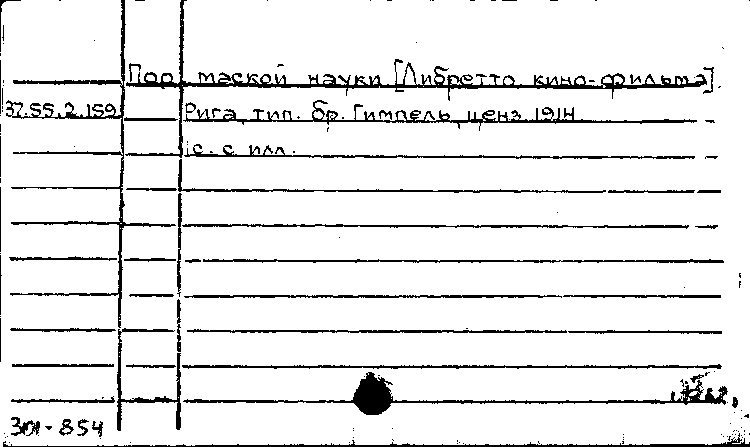 Под маской науки [Либретто кино-фильма]
37.55.2.159 Рига, тип. бр. Гимпель, ценз. 1914.
1с. с илл.
301-854